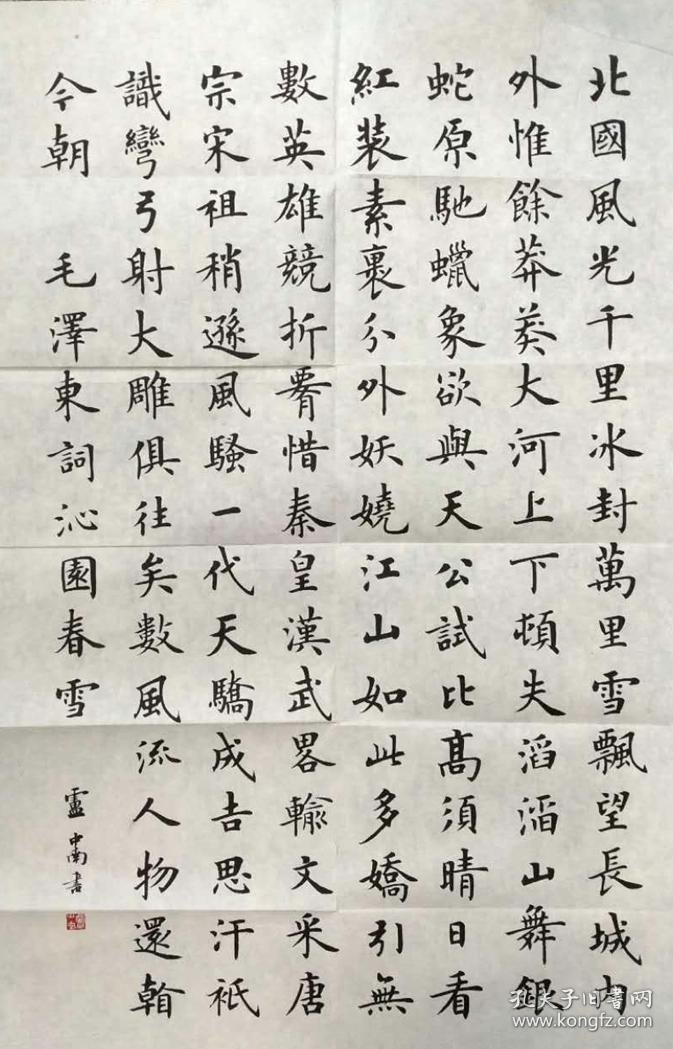 北國風光千里冰封萬里雪飄望長城内
外惟餘莽莽大河上下頓失滔滔山舞銀
蛇原馳蠟象欲與天公試比高須晴日看
紅装素裹分外妖嬈江山如此多嬌引無
數英雄競折腰惜秦皇漢武畧輸文采唐
宗宋祖稍遜風騷一代天驕成吉思汗祇
識彎弓射大雕俱往矣數風流人物還看
今朝 毛澤東詞沁園春雪
盧中南書
孔夫子旧書网
www.kongfz.com